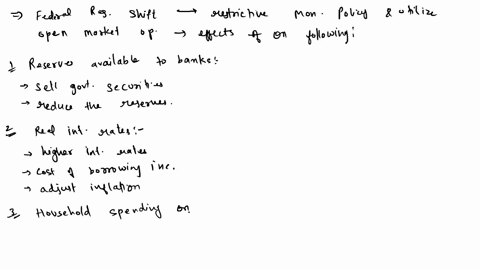 ⇒ Federal Res. Shift → restrictive Mon. Policy & utilize
open market op. → effects of on following:
1 Reserves available to banks:-
→ sell govt. securities
→ reduce the reserves.
2 Real int. rates:-
→ higher int. rates
→ cost of borrowing inc.
→ adjust inflation
3 Household spending on